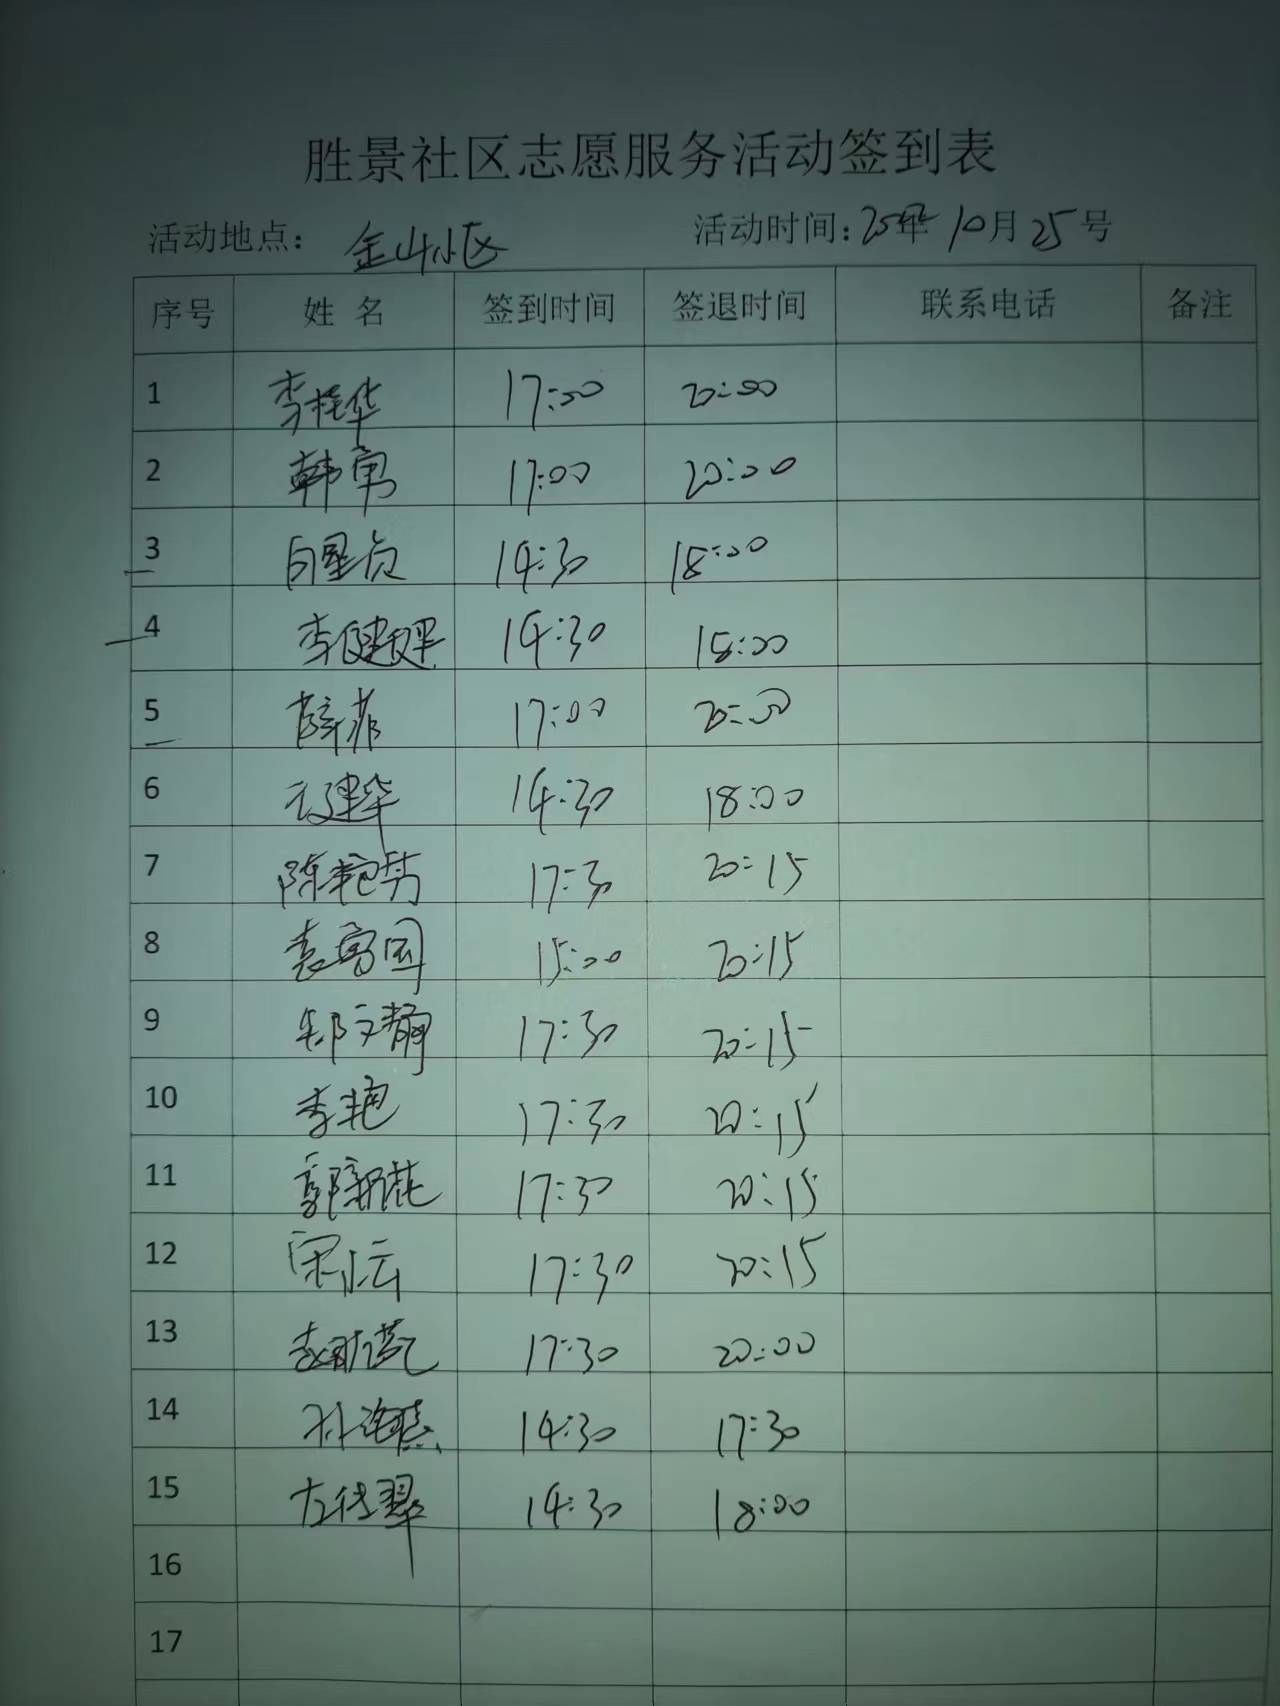 胜景社区志愿服务活动签到表
活动地点： 金山小区 活动时间：25年 10月 25号
序号 姓 名 签到时间 签退时间 联系电话 备注
1 李桂华 17:00 20:00
2 韩勇 17:00 20:00
3 白星贞 14:30 18:00
4 李健 14:30 18:00
5 薛菲 17:00 20:00
6 建华 14:30 18:00
7 陈艳芳 17:30 20:15
8 袁富国 15:00 20:15
9 郑文静 17:30 20:15
10 李艳 17:30 20:15
11 郭新花 17:30 20:15
12 宋小云 17:30 20:15
13 17:30 20:00
14 孙 14:30 17:30
15 方 翠 14:30 18:00
16
17